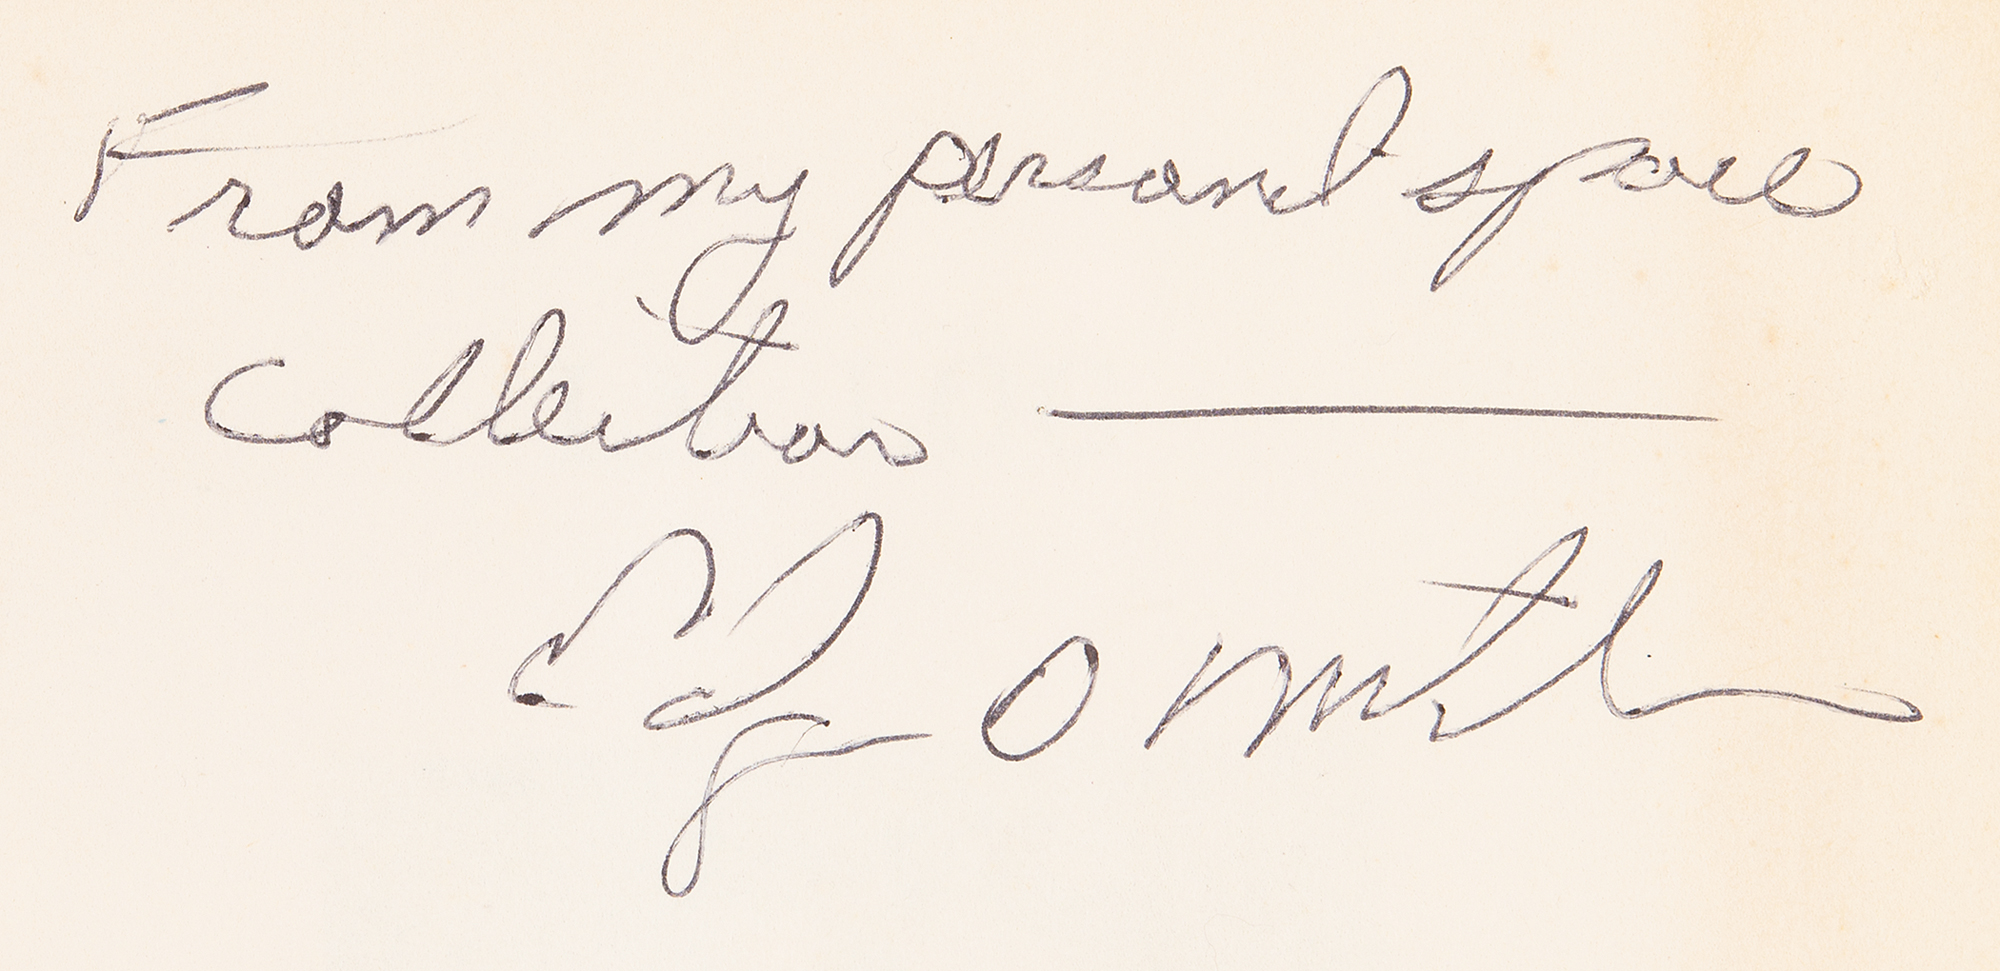 From my personal space
Collection
Edgar D Mitchell